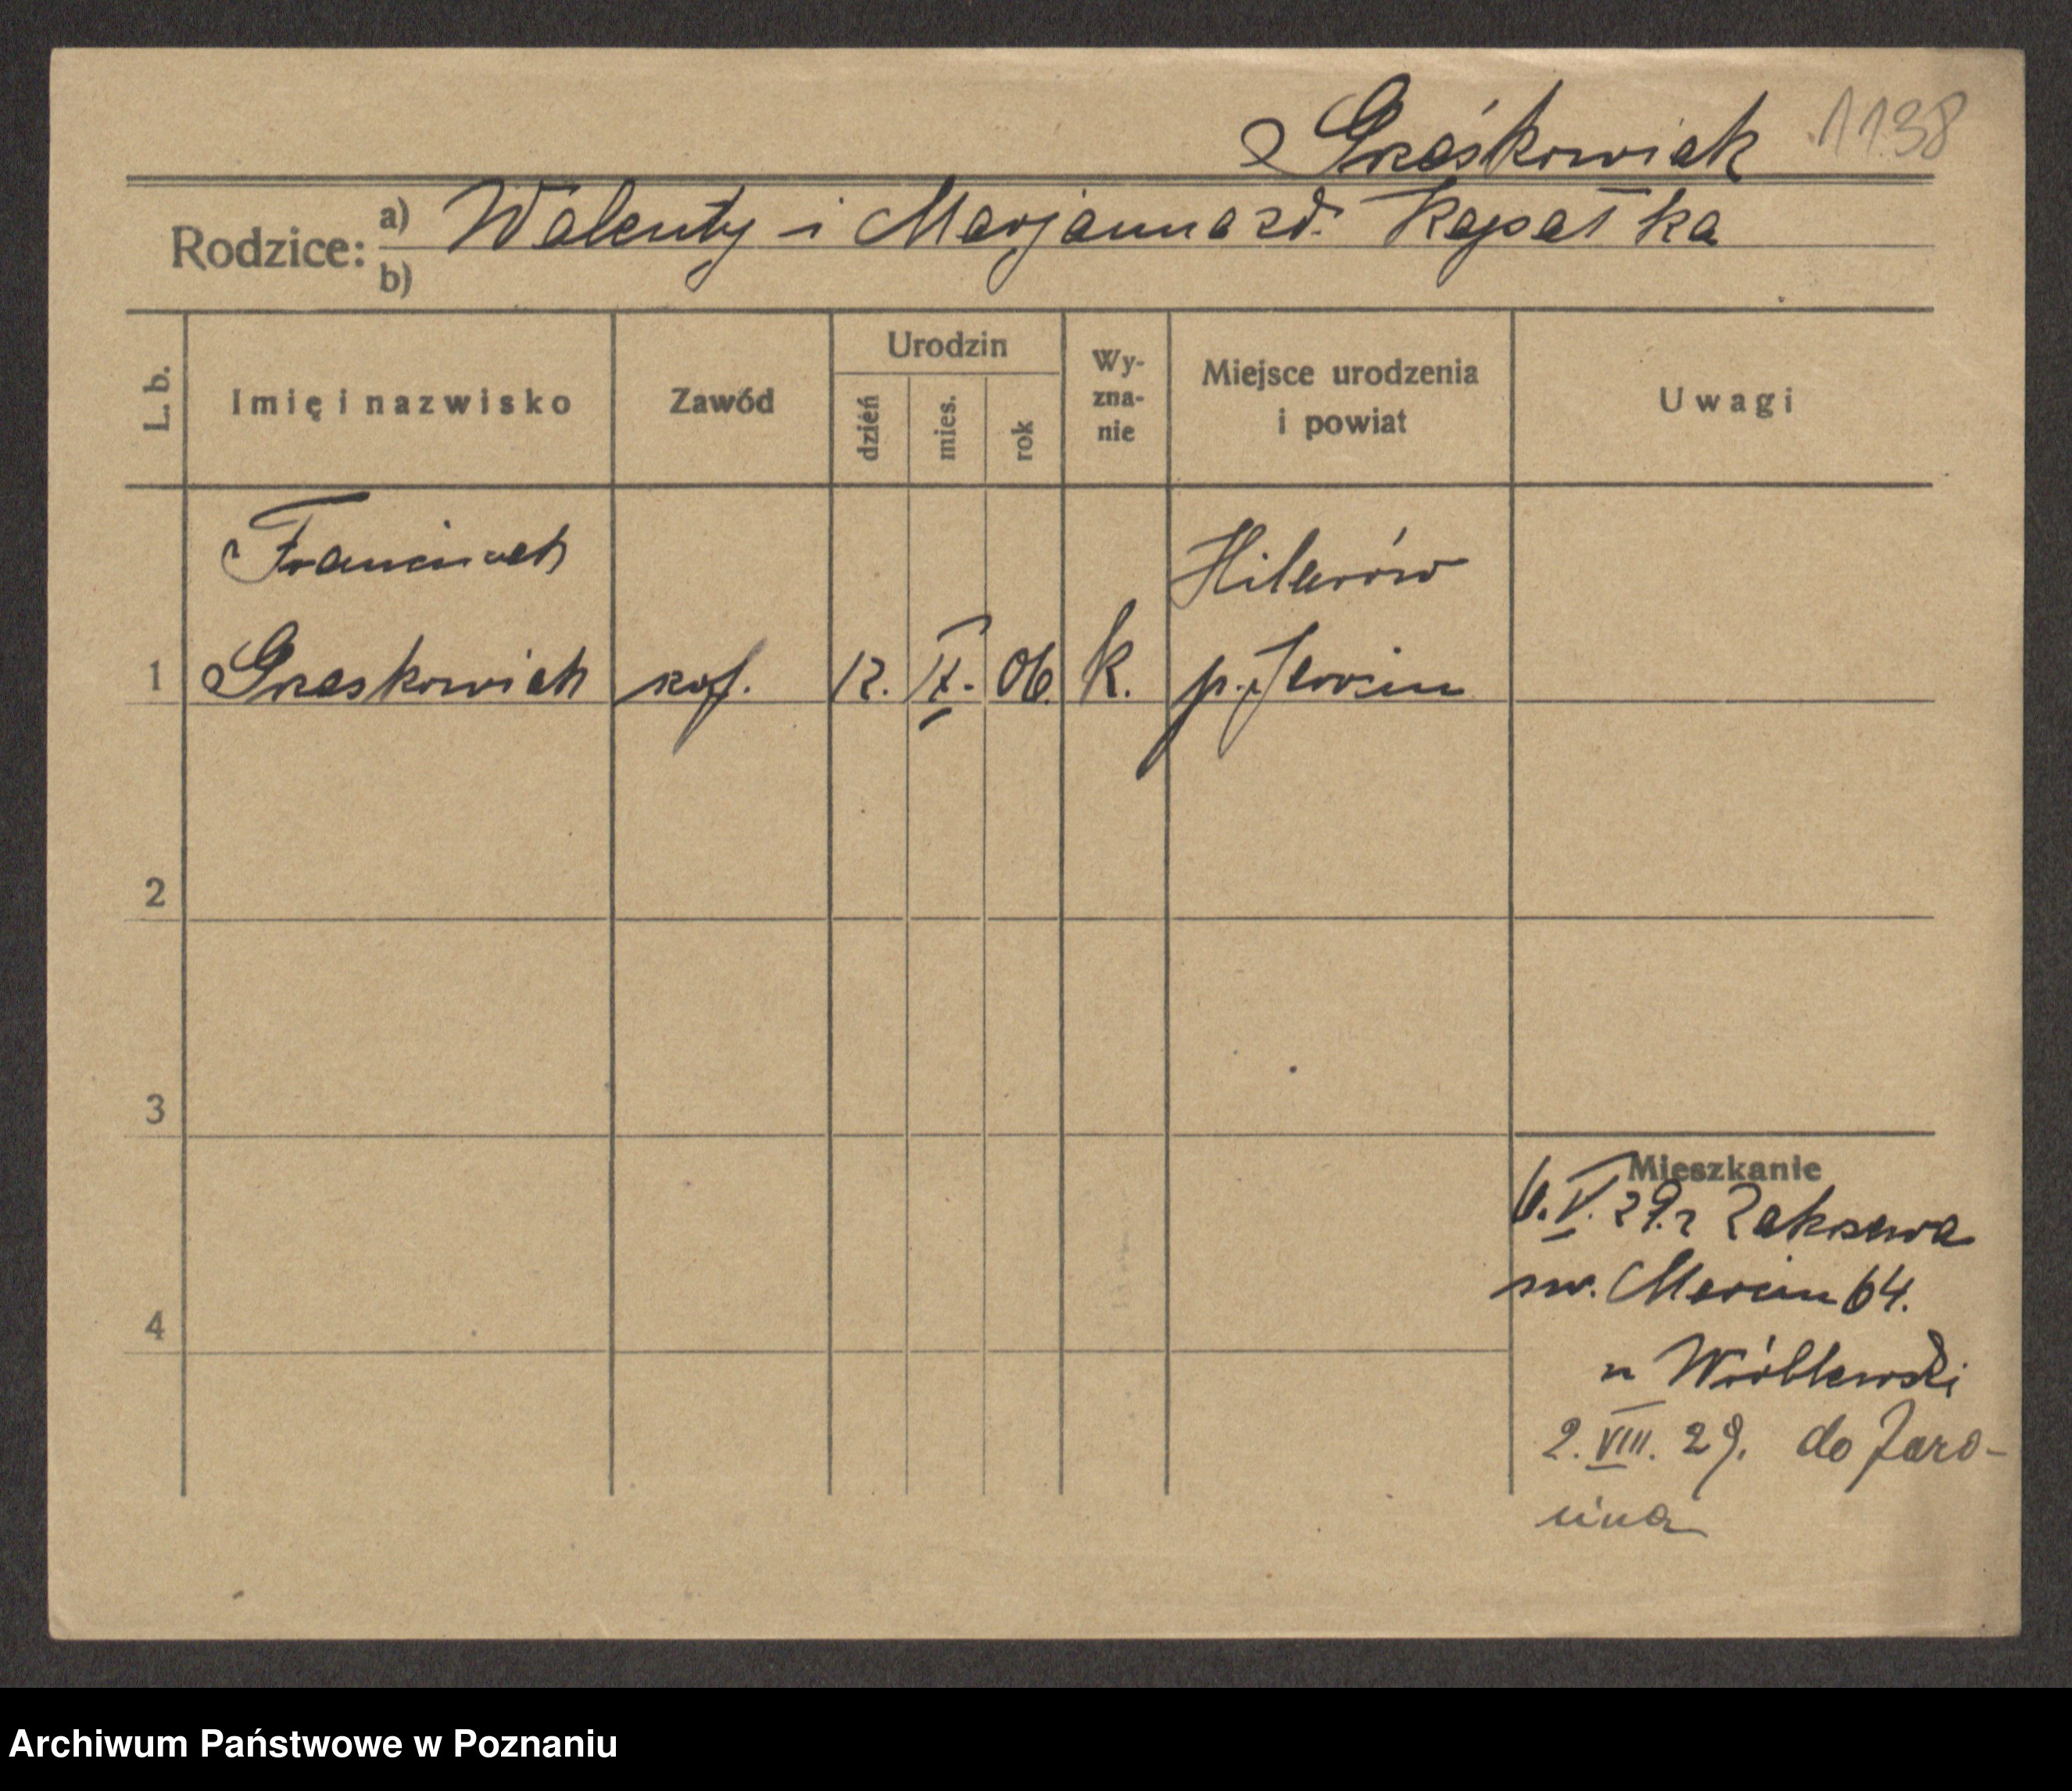 Grześkowiak 1138
Rodzice: a) Walenty i Marjanna zd. Kapałka
b)
L. b. Imię i nazwisko Zawód Urodzin dzień mies. rok Wy-zna-nie Miejsce urodzenia i powiat Uwagi
Franciszek Hilarów
1 Grzeskowiak 12. 06. k. p. Jarocin
2
3
Mieszkanie
6.V.29. z Zakrzewa
św. Marcin 64.
4
u Wróblewski
2.VIII.29. do Jaro-
cina
Archiwum Państwowe w Poznaniu